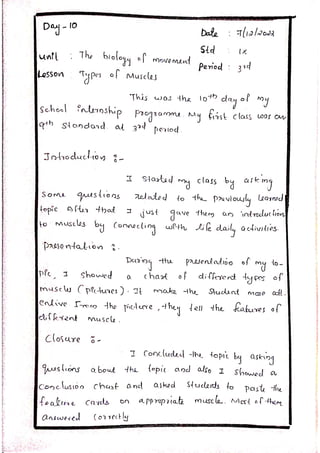 Day - 10
Date : 7/12/2023
Std : IX
Unit : The biology of movement
Period : 3rd
Lesson Types of Muscles
This was the 10th day of my
School internship programme My first class was on
9th Standard at 3rd period
Introduction :-
I started my class by asking
Some questions related to the previously learned
topic After that I just gave them an introduction
to Muscles by Connecting with life daily activities.
presentation :-
During the presentation of my to-
pic, I showed a chart of different types of
muscles (pictures). It make the student more att-
entive From the picture, they tell the features of
different muscle.
Closure :-
I concluded the topic by asking
questions about the topic and also I showed a
Conclusion chart and asked Students to paste the
feature cards on appropriate muscle. Most of them
answered Correctly